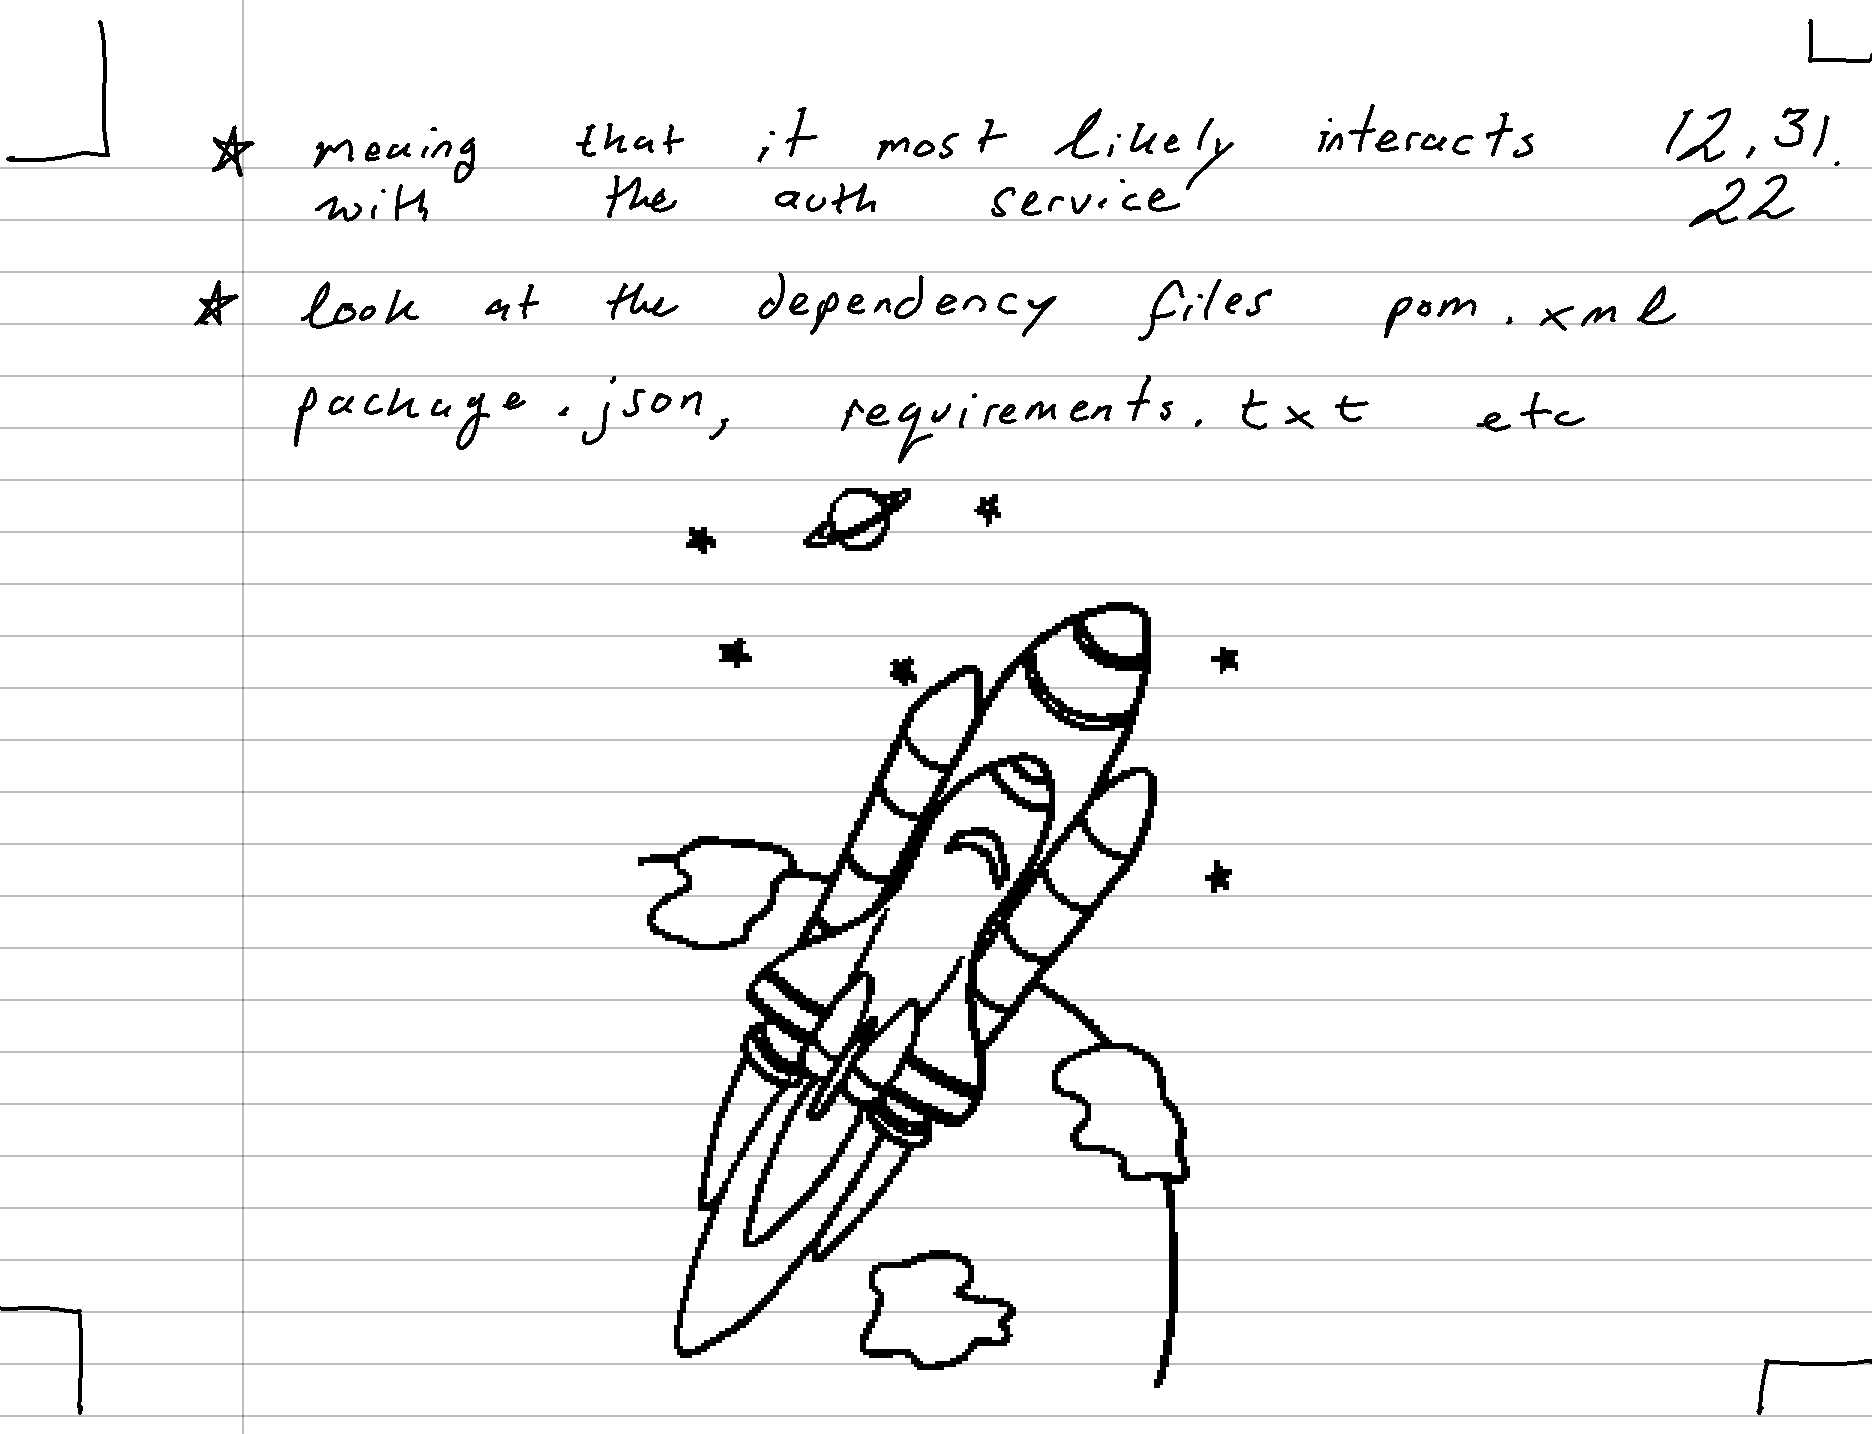 ☆ meaing that it most likely interacts 12.31.
with the auth service 22
☆ look at the dependency files pom.xml
package.json, requirements.txt etc